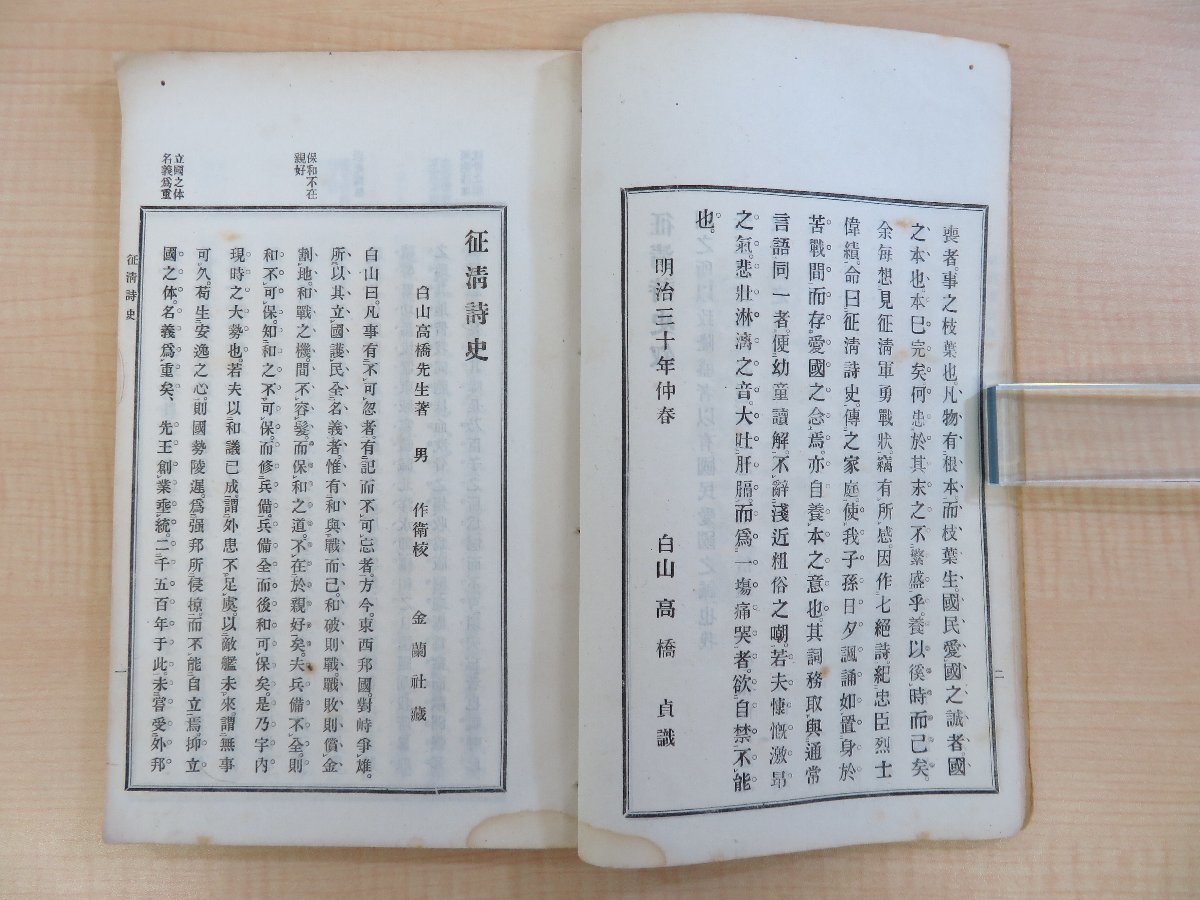 喪者、事之枝葉也。凡物有根本而枝葉生。國民愛國之誠者國
之本也。本已完矣、何患於其末之不繁盛乎。養以俟時而已矣。
余每想見征淸軍勇戰狀、竊有所感、因作七絕詩、紀忠臣烈士
偉績、命曰征淸詩史。傳之家庭、使我子孫日夕諷誦如置身於
苦戰間而存愛國之念焉。亦自養本之意也。其詞務取與通常
言語同一者、便幼童讀解、不辭淺近粗俗之嘲。若夫慷慨激昂
之氣、悲壯淋漓之音、大吐肝膈而爲一塲痛哭者、欲自禁不能
也。
明治三十年仲春
白山 高橋 貞識
二
保和不在
親好
立國之体
名義爲重
征淸詩史
白山高橋先生著 男 作衞校 金蘭社藏
白山曰。凡事有不可忽者。有記而不可忘者。方今東西邦國對峙爭雄。
所以其立國護民全名義者、惟有和與戰而已。和破則戰、戰敗則償金
割地。和戰之機、間不容髮。而保和之道、不在於親好矣。夫兵備不全、則
和不可保。知和之不可保、而修兵備、兵備全而後和可保矣。是乃宇內
現時之大勢也。若夫以和議已成、謂外患不足虞、以敵艦未來、謂無事
可久、苟生安逸之心、則國勢陵遲、爲强邦所侵掠、而不能自立焉。抑立
國之体、名義爲重矣、 先王創業垂統、二千五百年于此、未嘗受外邦
征淸詩史
一